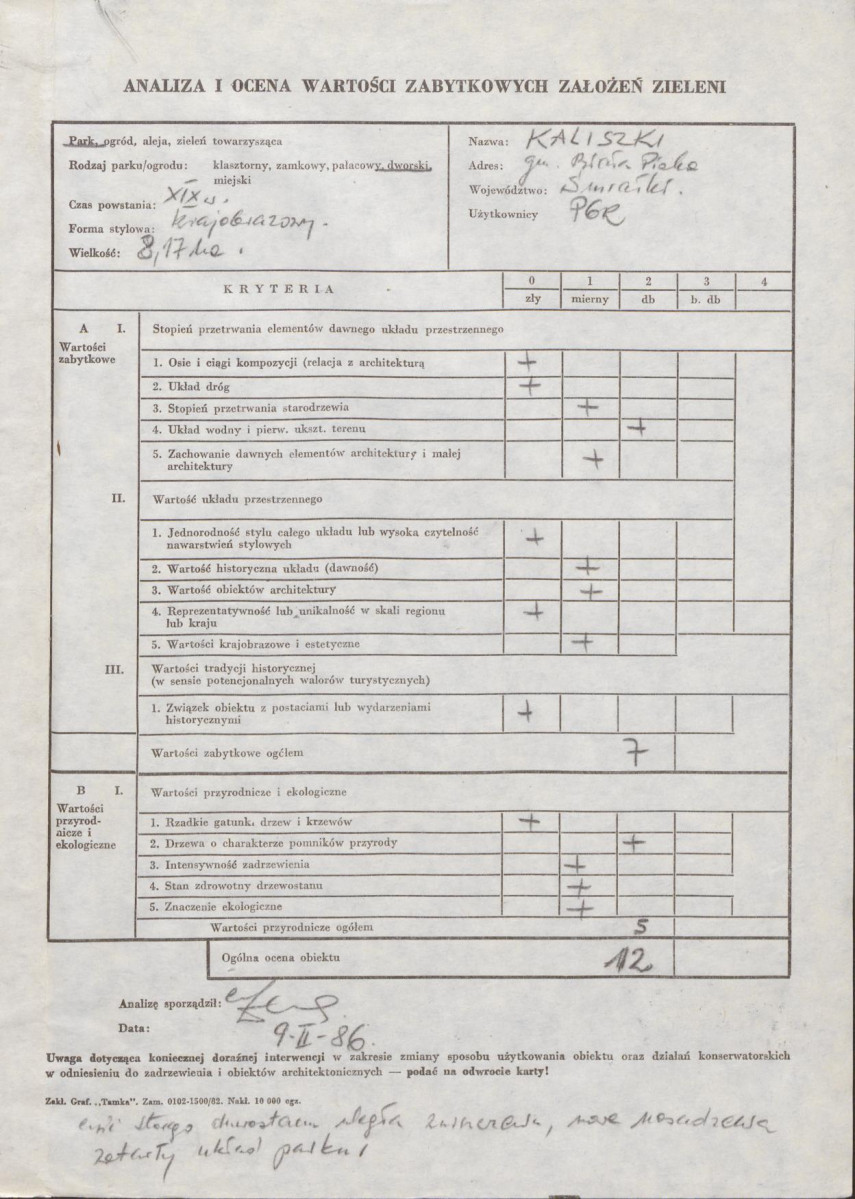 ANALIZA I OCENA WARTOŚCI ZABYTKOWYCH ZAŁOŻEŃ ZIELENI
Park, ogród, aleja, zieleń towarzysząca
Rodzaj parku/ogrodu: klasztorny, zamkowy, pałacowy, dworski,
miejski
Czas powstania: XIX w.
Forma stylowa: krajobrazowy
Wielkość: 8,17 ha
Nazwa: KALISZKI
Adres: gm. Biała Piska
Województwo: Suwałki
Użytkownicy PGR
KRYTERIA
0 1 2 3 4
zły mierny db b. db
A I. Stopień przetrwania elementów dawnego układu przestrzennego
Wartości
zabytkowe
1. Osie i ciągi kompozycji (relacja z architekturą +
2. Układ dróg +
3. Stopień przetrwania starodrzewia +
4. Układ wodny i pierw. ukszt. terenu +
5. Zachowanie dawnych elementów architektury i małej
architektury +
II. Wartość układu przestrzennego
1. Jednorodność stylu całego układu lub wysoka czytelność
nawarstwień stylowych +
2. Wartość historyczna układu (dawność) +
3. Wartość obiektów architektury +
4. Reprezentatywność lub unikalność w skali regionu
lub kraju +
5. Wartości krajobrazowe i estetyczne +
III. Wartości tradycji historycznej
(w sensie potencjonalnych walorów turystycznych)
1. Związek obiektu z postaciami lub wydarzeniami
historycznymi +
Wartości zabytkowe ogółem 7
B I. Wartości przyrodnicze i ekologiczne
Wartości
przyrod-
nicze i
ekologiczne
1. Rzadkie gatunki drzew i krzewów +
2. Drzewa o charakterze pomników przyrody +
3. Intensywność zadrzewienia +
4. Stan zdrowotny drzewostanu +
5. Znaczenie ekologiczne +
Wartości przyrodnicze ogółem 5
Ogólna ocena obiektu 12
Analizę sporządził:
Data: 9-II-86.
Uwaga dotycząca koniecznej doraźnej interwencji w zakresie zmiany sposobu użytkowania obiektu oraz działań konserwatorskich
w odniesieniu do zadrzewienia i obiektów architektonicznych — podać na odwrocie karty!
Zakł. Graf. „Tamka". Zam. 0102-1500/82. Nakł. 10 000 egz.
starego drzewostanu uległa zniszczeniu, nowe nasadzenia
zatarły układ parku